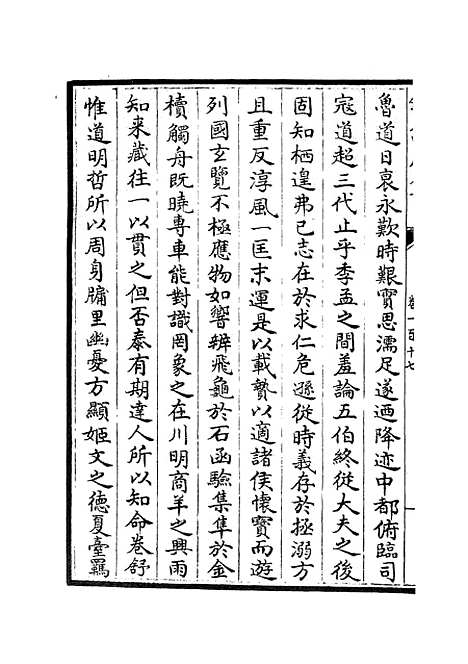 魯道日衰永歎時艱實思濡足遂迺降迹中都俯臨司
寇道超三代止乎季孟之間羞論五伯終從大夫之後
固知栖遑弗已志在於求仁危遜從時義存於拯溺方
且重反淳風一匡末運是以載贄以適諸侯懷寶而遊
列國玄覽不極應物如響辨飛龜於石函驗集隼於金
櫝觸舟既曉專車能對識罔象之在川明商羊之興雨
知来藏往一以貫之但否泰有期達人所以知命卷舒
惟道明哲所以周身牗里幽憂方顯姬文之德夏臺羈
卷一百十七